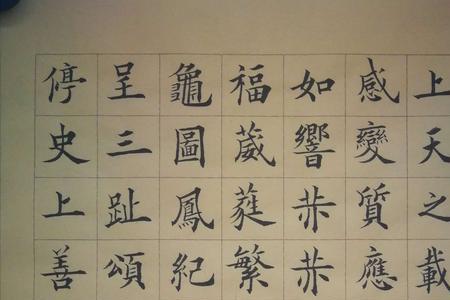 上天之載
感變質應
如響赤赤
福葳蕤繁
龜圖鳳紀
呈三趾頌
停史上善